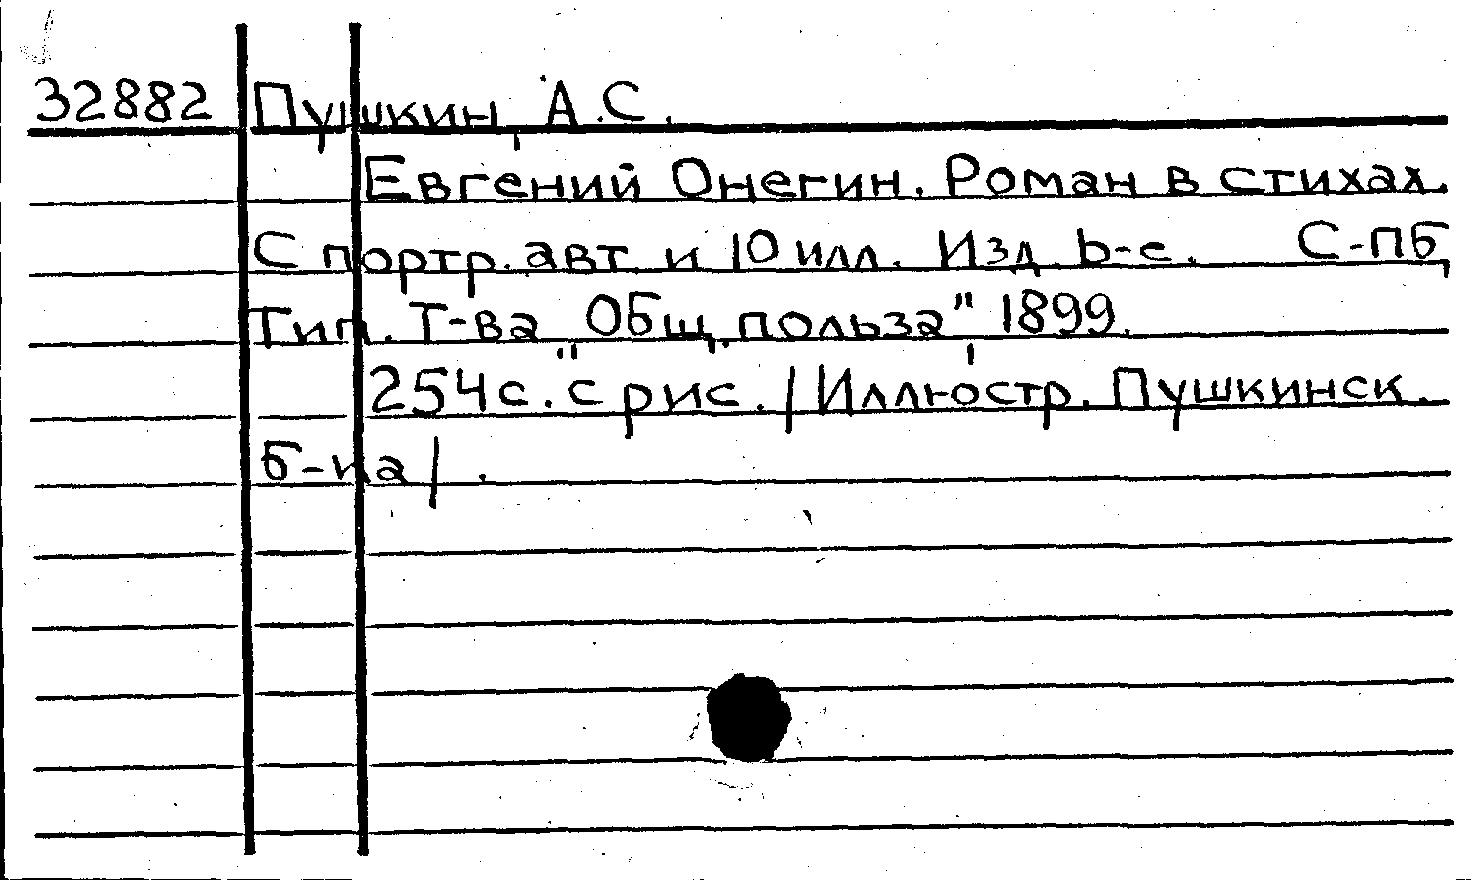 32882 Пушкин, А.С.
Евгений Онегин. Роман в стихах.
С портр. авт. и 10 илл. Изд. 6-е. С-ПБ,
Тип. Т-ва „Общ. польза" 1899.
254 с. с рис. / Иллюстр. Пушкинск.
б-ка / .